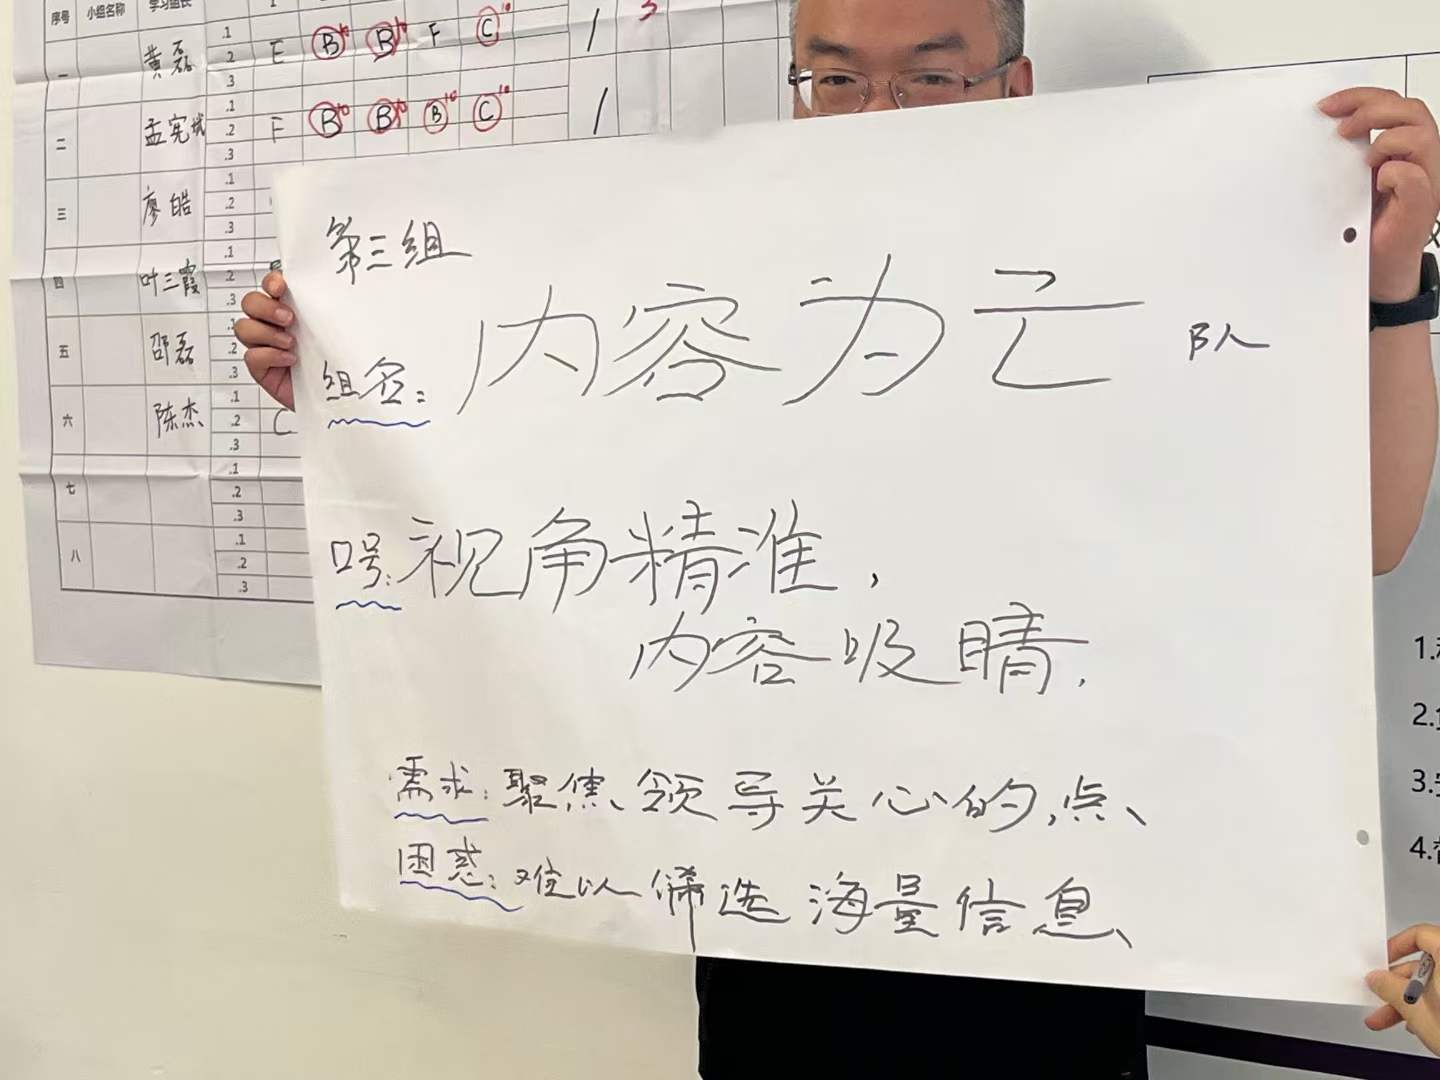 序号 小组名称 学习组长 1
一 黄磊 .1 .2 .3 E B+10 B+10 F C+10 1 3
二 孟宪斌 .1 .2 .3 F B+10 B+10 B+10 C+10 1
三 廖皓 .1 .2 .3
四 叶三霞 .1 .2 .3
五 邵磊 .1 .2 .3
六 陈杰 .1 .2 .3 C
七 .1 .2 .3
八 .1 .2 .3
第三组
组名: 内容为亡 队
口号: 视角精准,
内容吸睛.
需求: 聚焦领导关心的点、
困惑: 难以筛选海量信息、
1.
2.
3.
4.